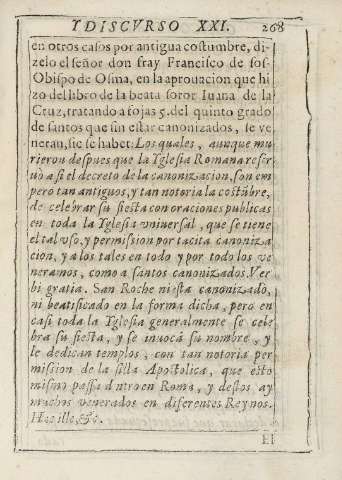 Y DISCVRSO XXI. 268
en otros casos por antigua costumbre, di-
zelo el señor don fray Francisco de sos-
Obispo de Osma, en la aprouacion que hi
zo del libro de la beata soror Iuana de la
Cruz, tratando a fojas 5. del quinto grado
de santos que sin estar canonizados, se ve
neran, sic se habet: Los quales, aunque mu
rieron despues que la Yglesia Romana reser
uo a si el decreto de la canonizacion, son em
pero tan antiguos, y tan notoria la costũbre,
de celebrar su fiesta con oraciones publicas
en toda la Yglesia vniuersal, que se tiene
el tal vso, y permission por tacita canoniza
cion, y a los tales en todo y por todo los ve
neramos, como a santos canonizados. Ver
bi gratia. San Roche ni està canonizado,
ni beatificado en la forma dicha, pero en
casi toda la Yglesia generalmente se cele
bra su fiesta, y se inuoca su nombre, y
le dedican templos, con tan notoria per
mission de la silla Apostolica, que esto
mismo passa dẽtro en Roma, y destos ay
muchos venerados en diferentes Reynos.
Hæc ille, &c.
El